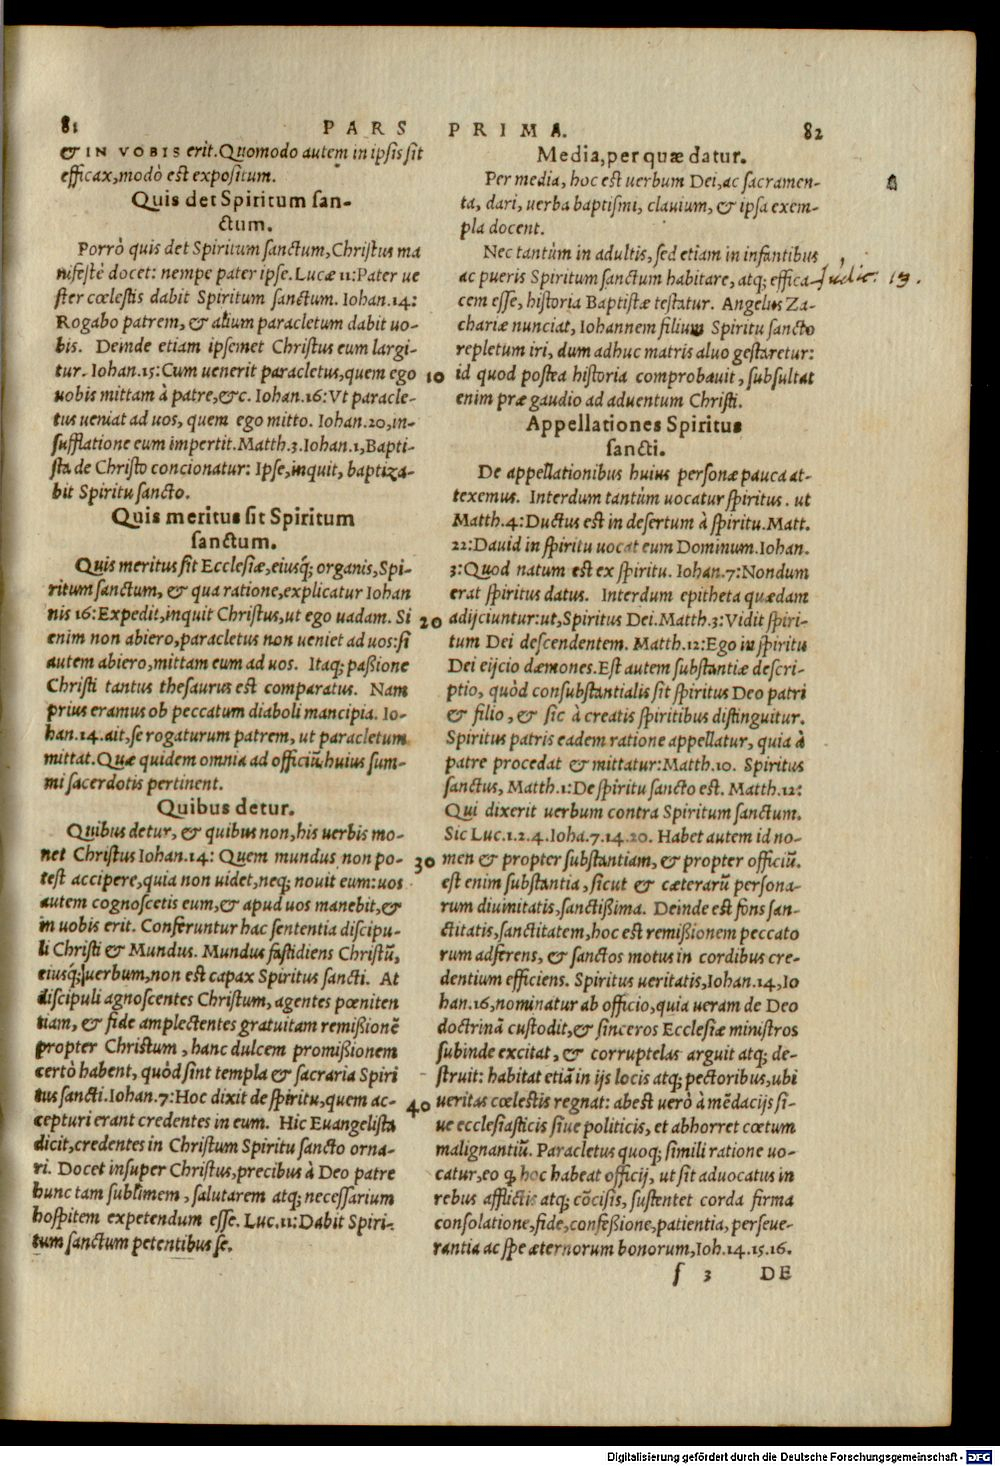 81 PARS PRIMA. 82
& IN VOBIS erit. Quomodo autem in ipsis sit
efficax, modò est expositum.
Quis det Spiritum san-
ctum.
Porrò quis det Spiritum sanctum, Christus ma
nifestè docet: nempe pater ipse. Lucæ 11: Pater ue
ster cœlestis dabit Spiritum sanctum. Iohan. 14:
Rogabo patrem, & alium paracletum dabit uo-
bis. Deinde etiam ipsemet Christus eum largi-
tur. Iohan. 15: Cum uenerit paracletus, quem ego
uobis mittam à patre, &c. Iohan. 16: Vt paracle-
tus ueniat ad uos, quem ego mitto. Iohan. 20, in-
sufflatione eum impertit. Matth. 3. Iohan. 1, Bapti-
sta de Christo concionatur: Ipse, inquit, baptiza-
bit Spiritu sancto.
Quis meritus sit Spiritum
sanctum.
Quis meritus sit Ecclesiæ, eiusq́; organis, Spi-
ritum sanctum, & qua ratione, explicatur Iohan
nis 16: Expedit, inquit Christus, ut ego uadam. Si
enim non abiero, paracletus non ueniet ad uos: si
autem abiero, mittam eum ad uos. Itaq; paßione
Christi tantus thesaurus est comparatus. Nam
prius eramus ob peccatum diaboli mancipia. Io-
han. 14. ait, se rogaturum patrem, ut paracletum
mittat. Quæ quidem omnia ad officiũ huius sum-
mi sacerdotis pertinent.
Quibus detur.
Quibus detur, & quibus non, his uerbis mo-
net Christus Iohan. 14: Quem mundus non po-
test accipere, quia non uidet, neq; nouit eum: uos
autem cognoscetis eum, & apud uos manebit, &
in uobis erit. Conferuntur hac sententia discipu-
li Christi & Mundus. Mundus fastidiens Christũ,
eiusq́; uerbum, non est capax Spiritus sancti. At
discipuli agnoscentes Christum, agentes pœniten
tiam, & fide amplectentes gratuitam remißionẽ
propter Christum, hanc dulcem promißionem
certò habent, quòd sint templa & sacraria Spiri
tus sancti. Iohan. 7: Hoc dixit de spiritu, quem ac-
cepturi erant credentes in eum. Hic Euangelista
dicit, credentes in Christum Spiritu sancto orna-
ri. Docet insuper Christus, precibus à Deo patre
hunc tam sublimem, salutarem atq; necessarium
hospitem expetendum esse. Luc. 11: Dabit Spiri-
tum sanctum petentibus se.
10
20
30
40
Media, per quæ datur.
Per media, hoc est uerbum Dei, ac sacramen-
ta, dari, uerba baptismi, clauium, & ipsa exem-
pla docent.
Nec tantùm in adultis, sed etiam in infantibus
ac pueris Spiritum sanctum habitare, atq; effica-
cem esse, historia Baptistæ testatur. Angelus Za-
chariæ nunciat, Iohannem filium Spiritu sancto
repletum iri, dum adhuc matris aluo gestaretur:
id quod postea historia comprobauit, subsultat
enim præ gaudio ad aduentum Christi.
Judic. 13.
Appellationes Spiritus
sancti.
De appellationibus huius personæ pauca at-
texemus. Interdum tantùm uocatur spiritus. ut
Matth. 4: Ductus est in desertum à spiritu. Matt.
22: Dauid in spiritu uocat eum Dominum. Iohan.
3: Quod natum est ex spiritu. Iohan. 7: Nondum
erat spiritus datus. Interdum epitheta quædam
adijciuntur: ut, Spiritus Dei. Matth. 3: Vidit spiri-
tum Dei descendentem. Matth. 12: Ego in spiritu
Dei eijcio dæmones. Est autem substantiæ descri-
ptio, quòd consubstantialis sit spiritus Deo patri
& filio, & sic à creatis spiritibus distinguitur.
Spiritus patris eadem ratione appellatur, quia à
patre procedat & mittatur: Matth. 10. Spiritus
sanctus, Matth. 1: De spiritu sancto est. Matth. 12:
Qui dixerit uerbum contra Spiritum sanctum.
Sic Luc. 1. 2. 4. Ioha. 7. 14. 20. Habet autem id no-
men & propter substantiam, & propter officiũ.
est enim substantia, sicut & cæterarũ persona-
rum diuinitatis, sanctißima. Deinde est fons san-
ctitatis, sanctitatem, hoc est remißionem peccato
rum adferens, & sanctos motus in cordibus cre-
dentium efficiens. Spiritus ueritatis, Iohan. 14, Io
han. 16, nominatur ab officio, quia ueram de Deo
doctrinã custodit, & sinceros Ecclesiæ ministros
subinde excitat, & corruptelas arguit atq; de-
struit: habitat etiã in ijs locis atq; pectoribus, ubi
ueritas cœlestis regnat: abest uerò à mẽdacijs si-
ue ecclesiasticis siue politicis, et abhorret cœtum
malignantiũ. Paracletus quoq; simili ratione uo-
catur, eo q̢ hoc habeat officij, ut sit aduocatus in
rebus afflictis atq; cõcisis, sustentet corda firma
consolatione, fide, confeßione, patientia, perseue-
rantia ac spe æternorum bonorum, Ioh. 14. 15. 16.
f 3 DE
Digitalisierung gefördert durch die Deutsche Forschungsgemeinschaft - DFG